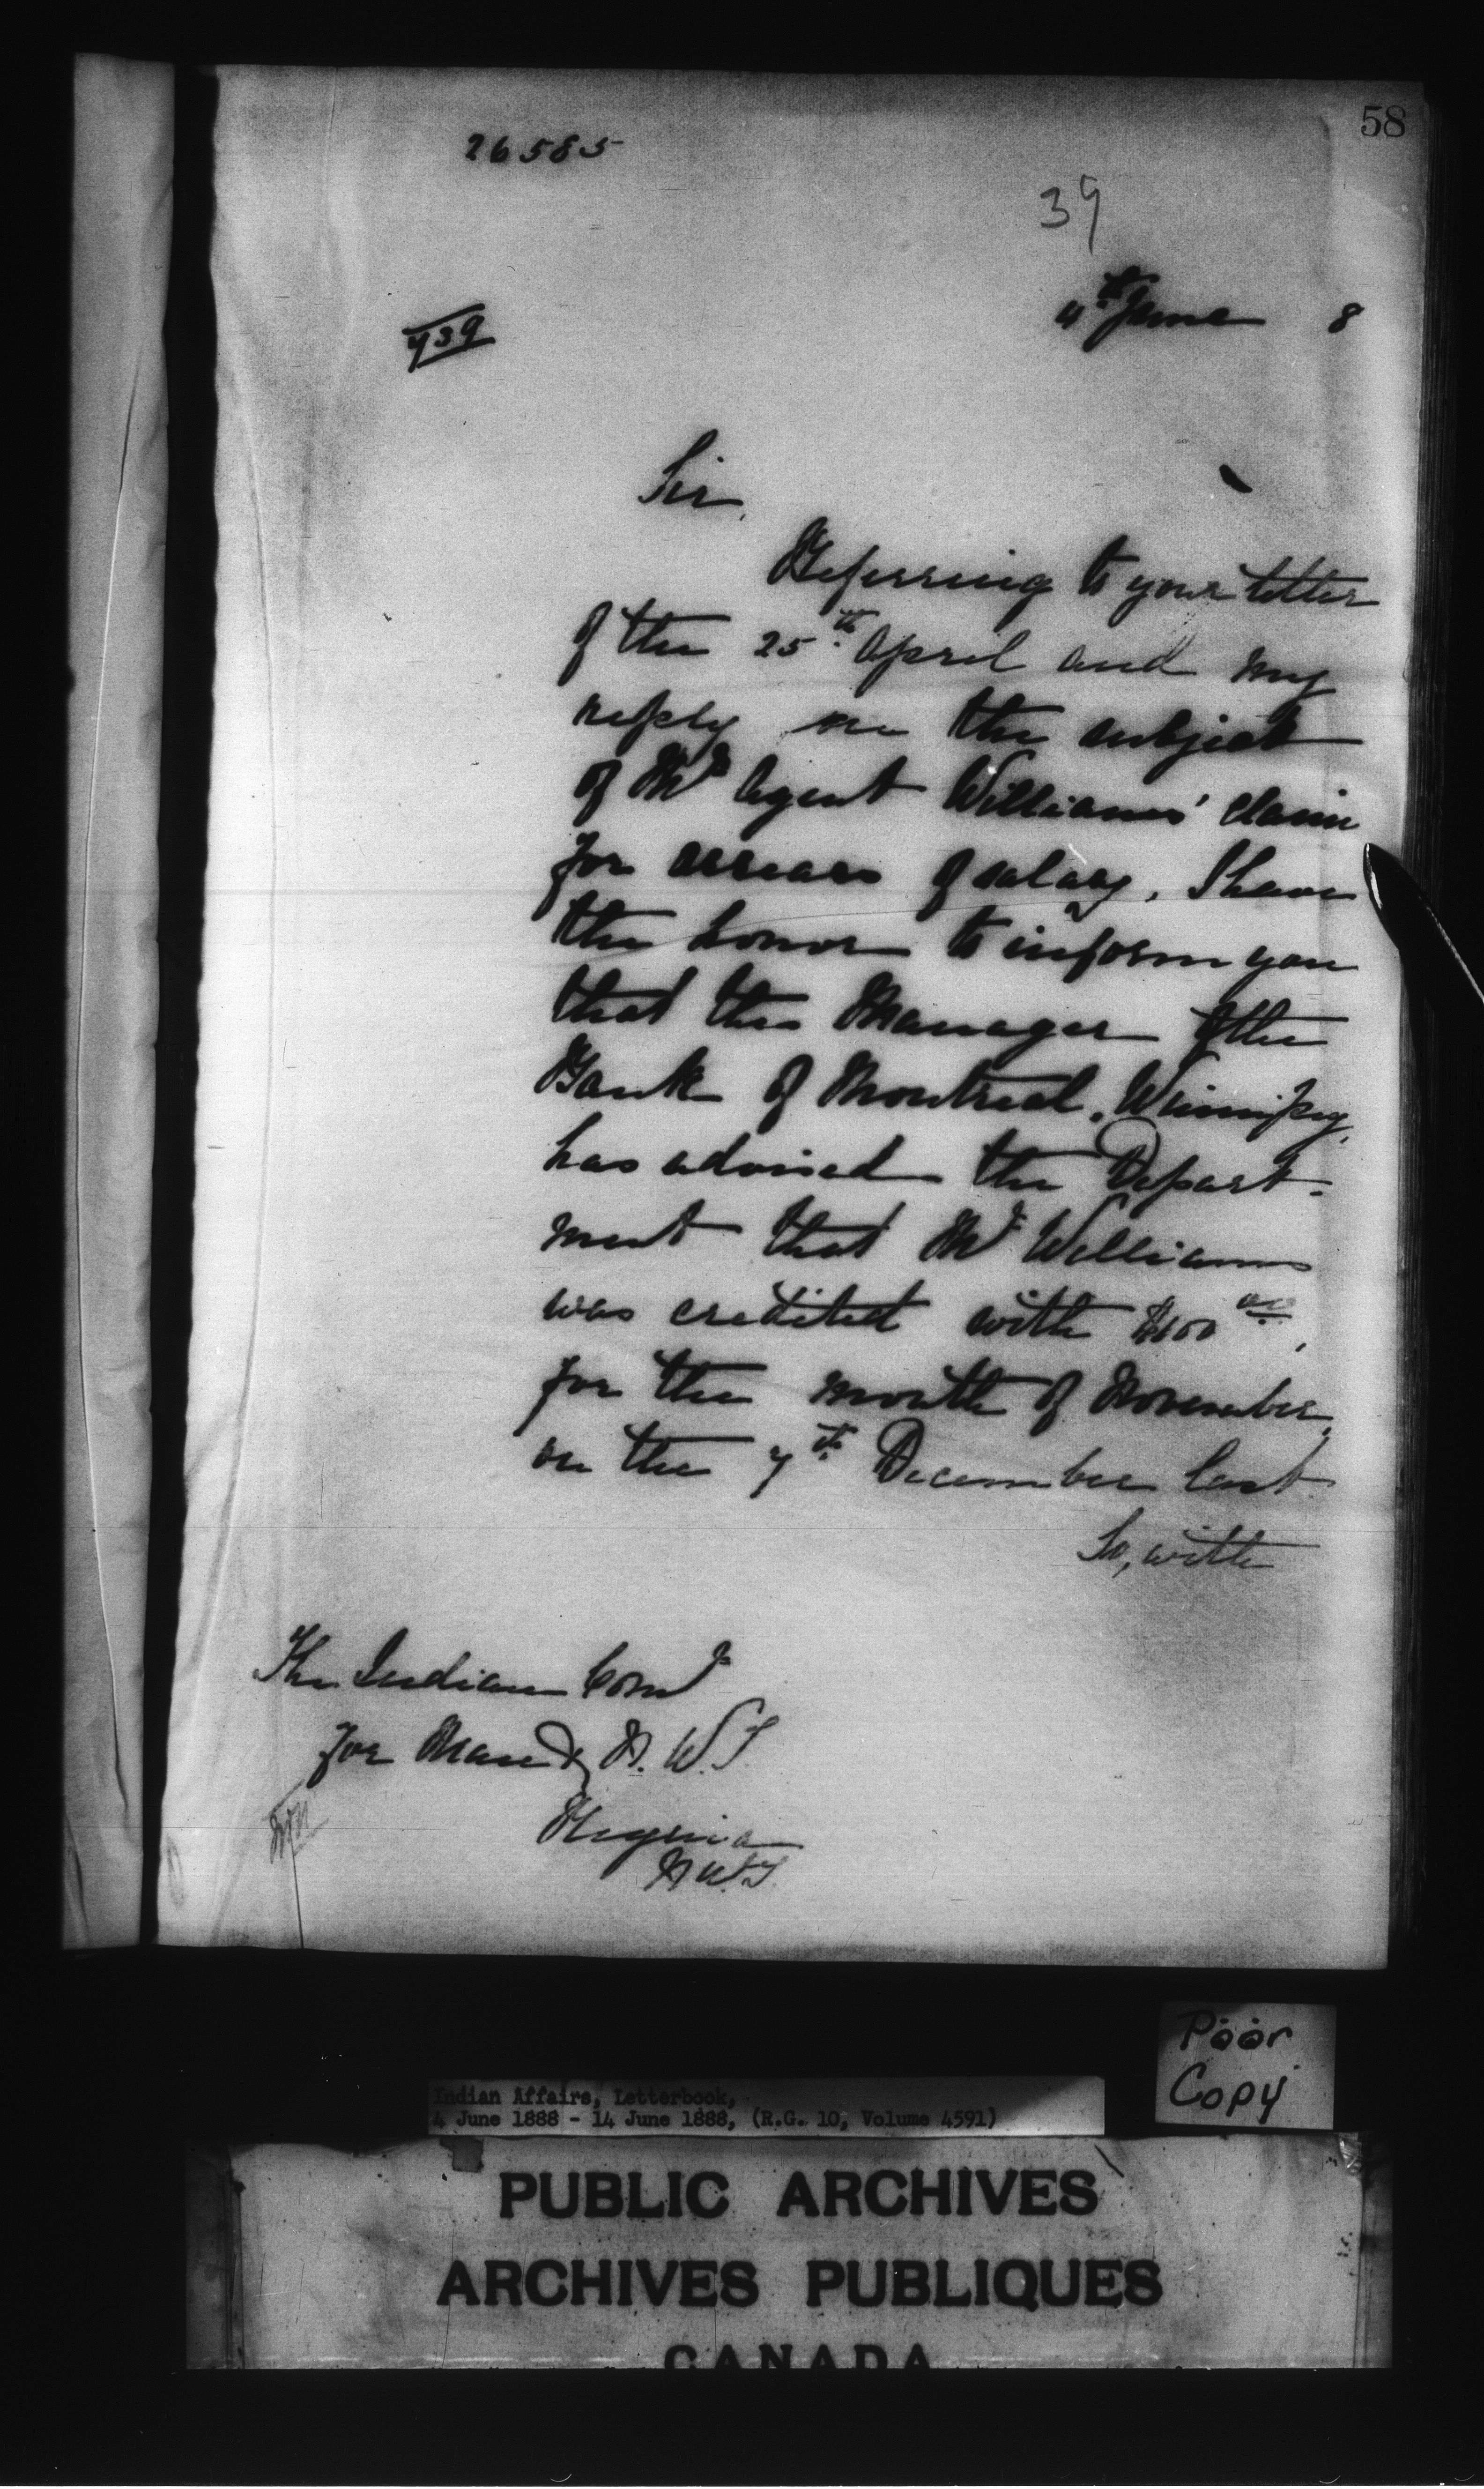 58
26585
39
4th June 8
739
Sir,
Referring to your letter
of the 25th April and my
reply on the subject
of Mr Agent Williams' claim
for arrears of salary, I have
the honor to inform you
that the Manager of the
Bank of Montreal, Winnipeg,
has advised the Depart-
ment that Mr Williams
was credited with $100 00,
for the month of November,
on the 7th December last
So, with
The Indian Comr
for Man & N. W. T
Regina
N W. T.
Poor
Copy
Indian Affairs, Letterbook,
4 June 1888 - 14 June 1888, (R.G. 10, Volume 4591)
PUBLIC ARCHIVES
ARCHIVES PUBLIQUES
CANADA